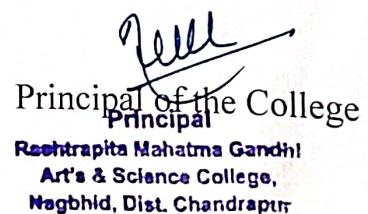 Principal of the College
Principal
Rashtrapita Mahatma Gandhi
Art's & Science College,
Nagbhid, Dist. Chandrapur